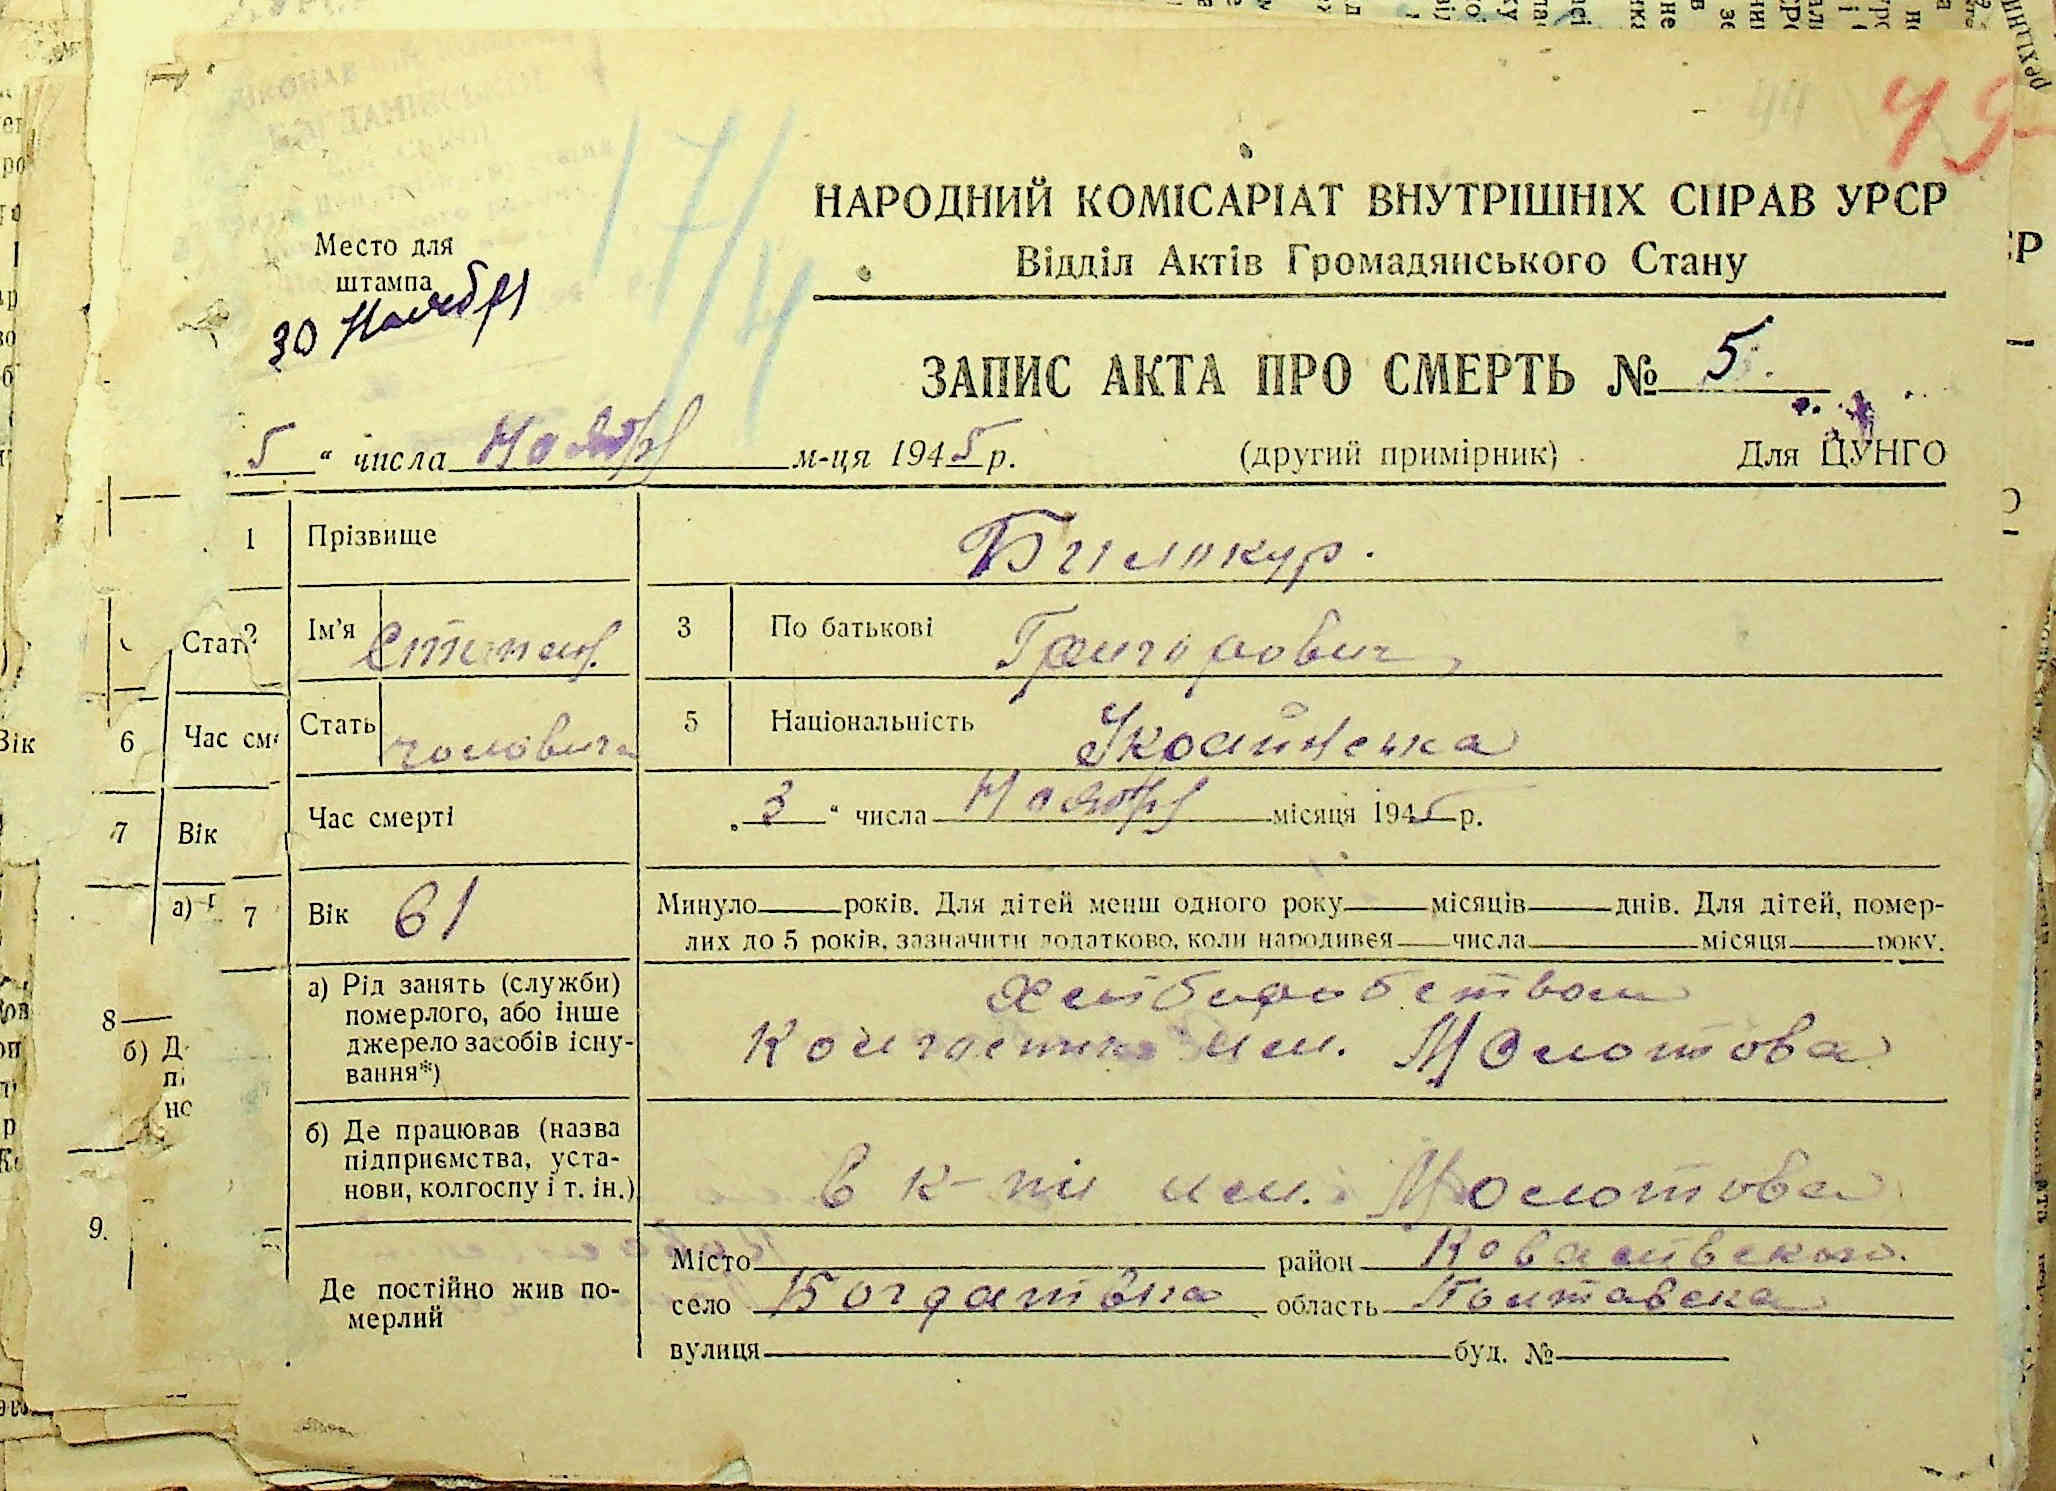 49
НАРОДНИЙ КОМІСАРІАТ ВНУТРІШНІХ СПРАВ УРСР
Відділ Актів Громадянського Стану
Место для
штампа
30 Ноября
17/4
ЗАПИС АКТА ПРО СМЕРТЬ № 5.
„5“ числа Ноября м-ця 1945 р. (другий примірник) Для ЦУНГО
1 Прізвище Билокур.
2 Ім'я Степан. 3 По батькові Григорович
Стать чоловича 5 Національність Українська
Час смерті „3“ числа Ноября місяця 1945 р.
7 Вік 61 Минуло років. Для дітей менш одного року місяців днів. Для дітей, помер-
лих до 5 років, зазначити додатково, коли народився числа місяця року.
а) Рід занять (служби)
померлого, або інше
джерело засобів існу-
вання*)
им. Молотова
б) Де працював (назва
підприємства, уста-
нови, колгоспу і т. ін.)
в к-пі им. Молотова
Де постійно жив по-
мерлий
Місто район
село область Полтавська
вулиця буд. №
Стат
6 Час см
7 Вік
а)
8
б) Д
9.
Вік